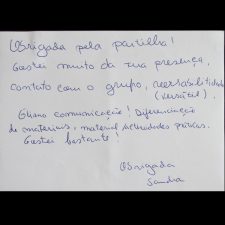 Obrigada pela partilha!
Gostei muito da tua presença,
contato com o grupo, versatilidade
(versátil).
Ótima comunicação! Diferenciação
de materiais, material, actividades práticas.
Gostei bastante!
Obrigada
Sandra